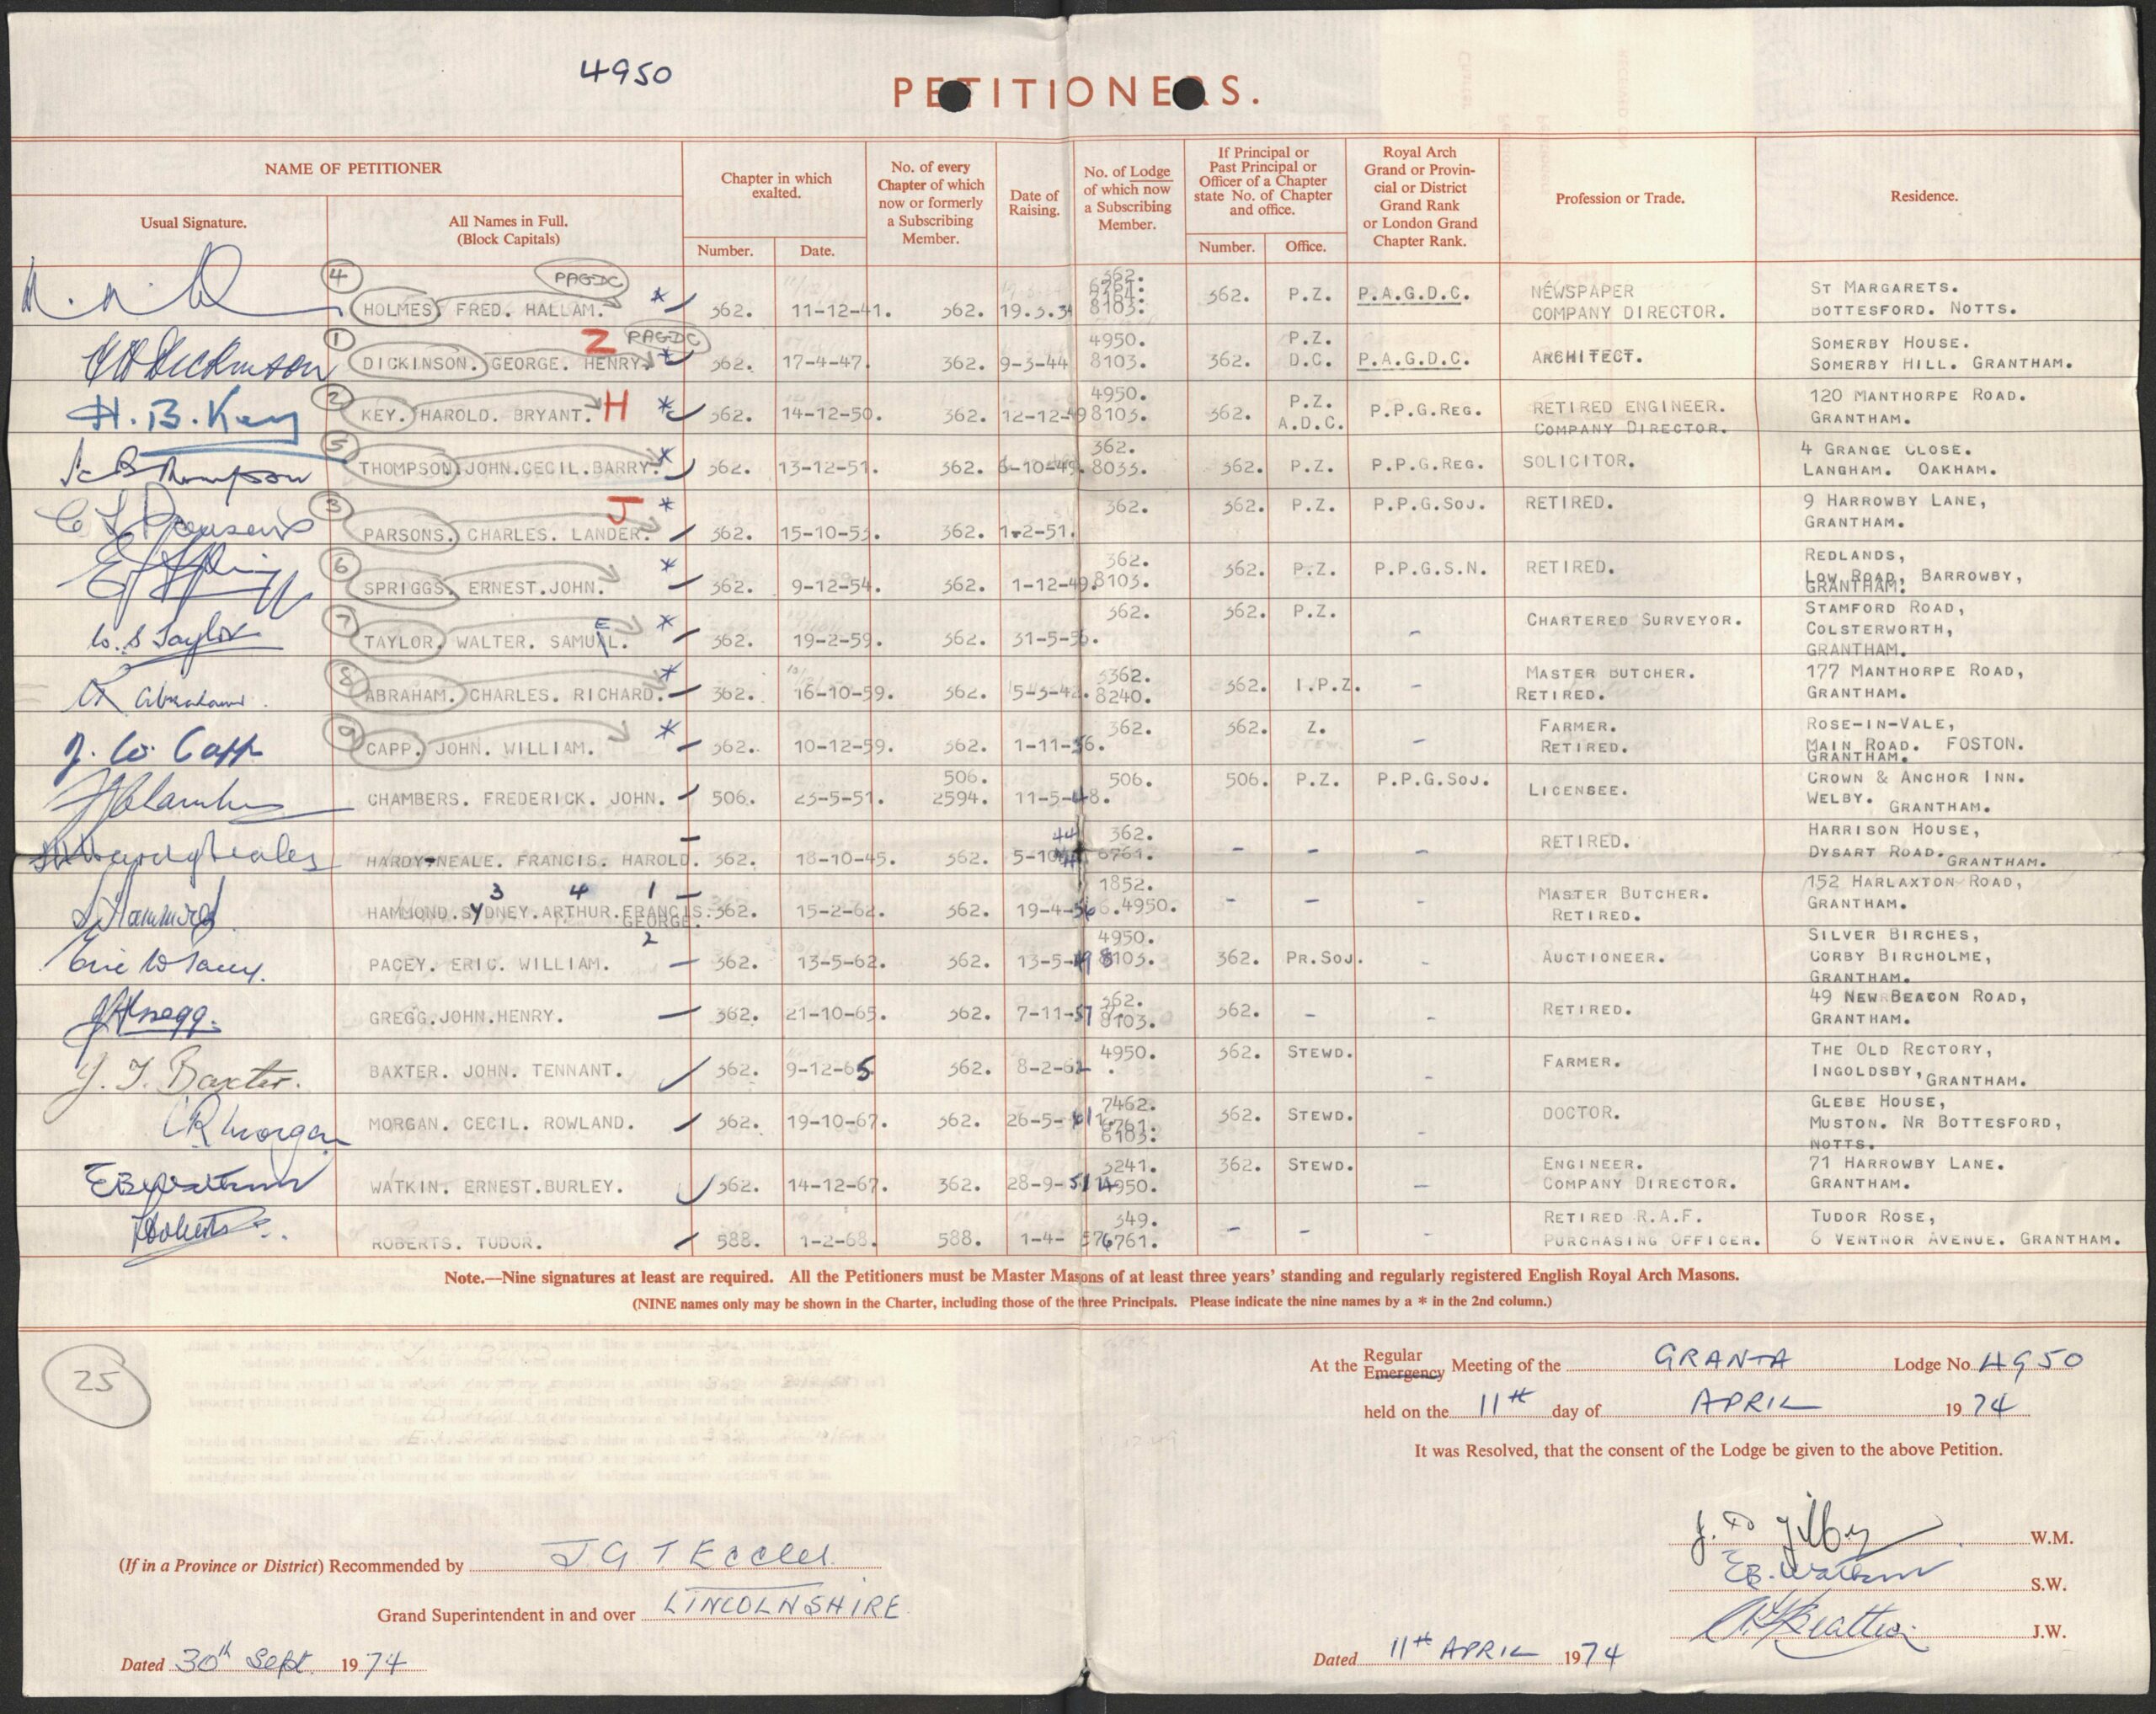 4950
PETITIONERS.
NAME OF PETITIONER
Usual Signature.
All Names in Full.
(Block Capitals)
Chapter in which
exalted.
Number.
Date.
No. of every
Chapter of which
now or formerly
a Subscribing
Member.
Date of
Raising.
No. of Lodge
of which now
a Subscribing
Member.
If Principal or
Past Principal or
Officer of a Chapter
state No. of Chapter
and office.
Number.
Office.
Royal Arch
Grand or Provin-
cial or District
Grand Rank
or London Grand
Chapter Rank.
Profession or Trade.
Residence.
4 PAGDC
HOLMES. FRED. HALLAM. * 362. 11-12-41. 362. 362. 8103. 362. P.Z. P.A.G.D.C. NEWSPAPER
COMPANY DIRECTOR.
ST MARGARETS.
BOTTESFORD. NOTTS.
1 Z PAGDC
GH Dickinson DICKINSON. GEORGE. HENRY. * 362. 17-4-47. 362. 9-3-44 4950.
8103. 362. P.Z.
D.C. P.A.G.D.C. ARCHITECT. SOMERBY HOUSE.
SOMERBY HILL. GRANTHAM.
2
H. B. Key KEY. HAROLD. BRYANT. H * 362. 14-12-50. 362. 12-12-49 4950.
8103. 362. P.Z.
A.D.C. P.P.G.REG. RETIRED ENGINEER.
COMPANY DIRECTOR.
120 MANTHORPE ROAD.
GRANTHAM.
5
J C B Thompson THOMPSON. JOHN.CECIL.BARRY. * 362. 13-12-51. 362. 6-10-49. 362.
8033. 362. P.Z. P.P.G.REG. SOLICITOR. 4 GRANGE CLOSE.
LANGHAM. OAKHAM.
3 J
C L Parsons PARSONS. CHARLES. LANDER. * 362. 15-10-53. 362. 1-2-51. 362. 362. P.Z. P.P.G.SOJ. RETIRED. 9 HARROWBY LANE,
GRANTHAM.
6
SPRIGGS. ERNEST.JOHN. * 362. 9-12-54. 362. 1-12-49. 362.
8103. 362. P.Z. P.P.G.S.N. RETIRED. REDLANDS,
LOW ROAD, BARROWBY,
GRANTHAM.
7 E
W. S Taylor TAYLOR. WALTER. SAMUAL. * 362. 19-2-59. 362. 31-5-56. 362. 362. P.Z. - CHARTERED SURVEYOR. STAMFORD ROAD,
COLSTERWORTH,
GRANTHAM.
8
CR Abraham ABRAHAM. CHARLES. RICHARD. * 362. 16-10-59. 362. 8240. 362. I.P.Z. - MASTER BUTCHER.
RETIRED.
177 MANTHORPE ROAD,
GRANTHAM.
9
J. W. Capp CAPP. JOHN. WILLIAM. * 362. 10-12-59. 362. 1-11-56. 362. 362. Z. - FARMER.
RETIRED.
ROSE-IN-VALE,
MAIN ROAD. FOSTON.
GRANTHAM.
CHAMBERS. FREDERICK. JOHN. 506. 23-5-51. 506.
2594. 11-5-48. 506. 506. P.Z. P.P.G.SOJ. LICENSEE. CROWN & ANCHOR INN.
WELBY. GRANTHAM.
HARDY-NEALE. FRANCIS. HAROLD. 362. 18-10-45. 362. 44 362.
6761. - - - RETIRED. HARRISON HOUSE,
DYSART ROAD. GRANTHAM.
3 4 1
HAMMOND.SYDNEY.ARTHUR.FRANCIS. 362. 15-2-62. 362. 19-4-56 1852.
4950. - - - MASTER BUTCHER.
RETIRED.
GEORGE.
2
152 HARLAXTON ROAD,
GRANTHAM.
Eric W Pacey. PACEY. ERIC. WILLIAM. 362. 13-5-62. 362. 13-5-49 4950.
8103. 362. PR.SOJ. - AUCTIONEER. SILVER BIRCHES,
CORBY BIRCHOLME,
GRANTHAM.
JH Gregg. GREGG.JOHN.HENRY. 362. 21-10-65. 362. 7-11-57 362.
8103. 362. - - RETIRED. 49 NEW BEACON ROAD,
GRANTHAM.
J. T. Baxter. BAXTER. JOHN. TENNANT. 362. 9-12-65 362. 8-2-62 4950. 362. STEWD. - FARMER. THE OLD RECTORY,
INGOLDSBY, GRANTHAM.
CR Morgan MORGAN. CECIL. ROWLAND. 362. 19-10-67. 362. 26-5-61 7462.
6761. 362. STEWD. - DOCTOR. GLEBE HOUSE,
MUSTON. NR BOTTESFORD,
NOTTS.
EB Watkin WATKIN. ERNEST.BURLEY. 362. 14-12-67. 362. 28-9-51 3241.
4950. 362. STEWD. - ENGINEER.
COMPANY DIRECTOR.
71 HARROWBY LANE.
GRANTHAM.
T Roberts ROBERTS. TUDOR. 588. 1-2-68. 588. 1-4-57 349.
6761. - - - RETIRED R.A.F.
PURCHASING OFFICER.
TUDOR ROSE,
6 VENTNOR AVENUE. GRANTHAM.
Note.—Nine signatures at least are required. All the Petitioners must be Master Masons of at least three years' standing and regularly registered English Royal Arch Masons.
(NINE names only may be shown in the Charter, including those of the three Principals. Please indicate the nine names by a * in the 2nd column.)
25
At the Regular Emergency Meeting of the GRANTA Lodge No. 4950
held on the 11th day of APRIL 1974
It was Resolved, that the consent of the Lodge be given to the above Petition.
W.M.
E.B. Watkin S.W.
J.W.
Dated 11th APRIL 1974
(If in a Province or District) Recommended by J G T Eccles
Grand Superintendent in and over LINCOLNSHIRE
Dated 30th Sept. 1974